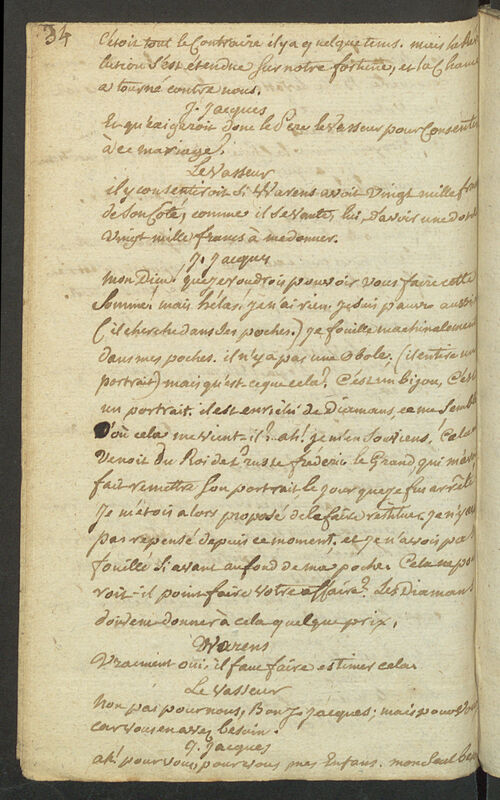 34
C'étoit tout le Contraire il y a quelque tems. mais la Revo
lution s'est etendue sur notre fortune, et la Chance
a tourné contre nous.
J. Jacques
Et qu'exigeroit donc le Pere le Vasseur pour Consentir
à ce mariage?
Le Vasseur
il y consentiroit si Warens avoit vingt mille francs
de son Coté, comme il se vante, lui, d'avoir une dot de
vingt mille francs à me donner.
J. Jacques
mon Dieu! que je voudrois pouvoir vous faire cette
somme. mais hélas. je n'ai rien. je suis pauvre aussi
(il cherche dans ses poches.) je fouille machinalement
dans mes poches. il n'y a pas une obole. (il en tire un
portrait) mais qu'est-ce que cela? C'est un bijou, C'est
un portrait. il est enrichi de Diamans, ce me semble
D'où cela me vient-il? ah! je m'en souviens, Cela me
venoit du Roi de Prusse frédéric le Grand, qui m'avoit
fait remettre son portrait le jour que je fus arrêté.
je m'étois alors proposé de le faire restituer. je n'y ai
pas repensé depuis ce moment, et je n'avois pas
fouillé si avant au fond de ma poche. Cela ne pour
roit-il point faire votre affaire? Les Diamans
doivent donner à cela quelque prix.
Warens
Vraiment oui. il faut faire estimer cela.
Le Vasseur
Non pas pour nous, Bon J. Jacques; mais pour vous
car vous en avez besoin.
J. Jacques
ah! pour vous, pour vous mes Enfans. mon seul